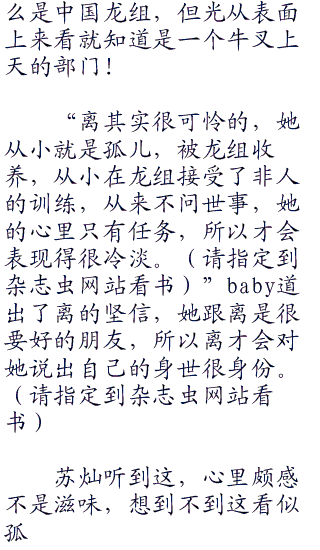 么是中国龙组，但光从表面
上来看就知道是一个牛叉上
天的部门！
“离其实很可怜的，她
从小就是孤儿，被龙组收
养，从小在龙组接受了非人
的训练，从来不问世事，她
的心里只有任务，所以才会
表现得很冷淡。（请指定到
杂志虫网站看书）”baby道
出了离的坚信，她跟离是很
要好的朋友，所以离才会对
她说出自己的身世很身份。
（请指定到杂志虫网站看
书）
苏灿听到这，心里颇感
不是滋味，想到不到这看似
孤